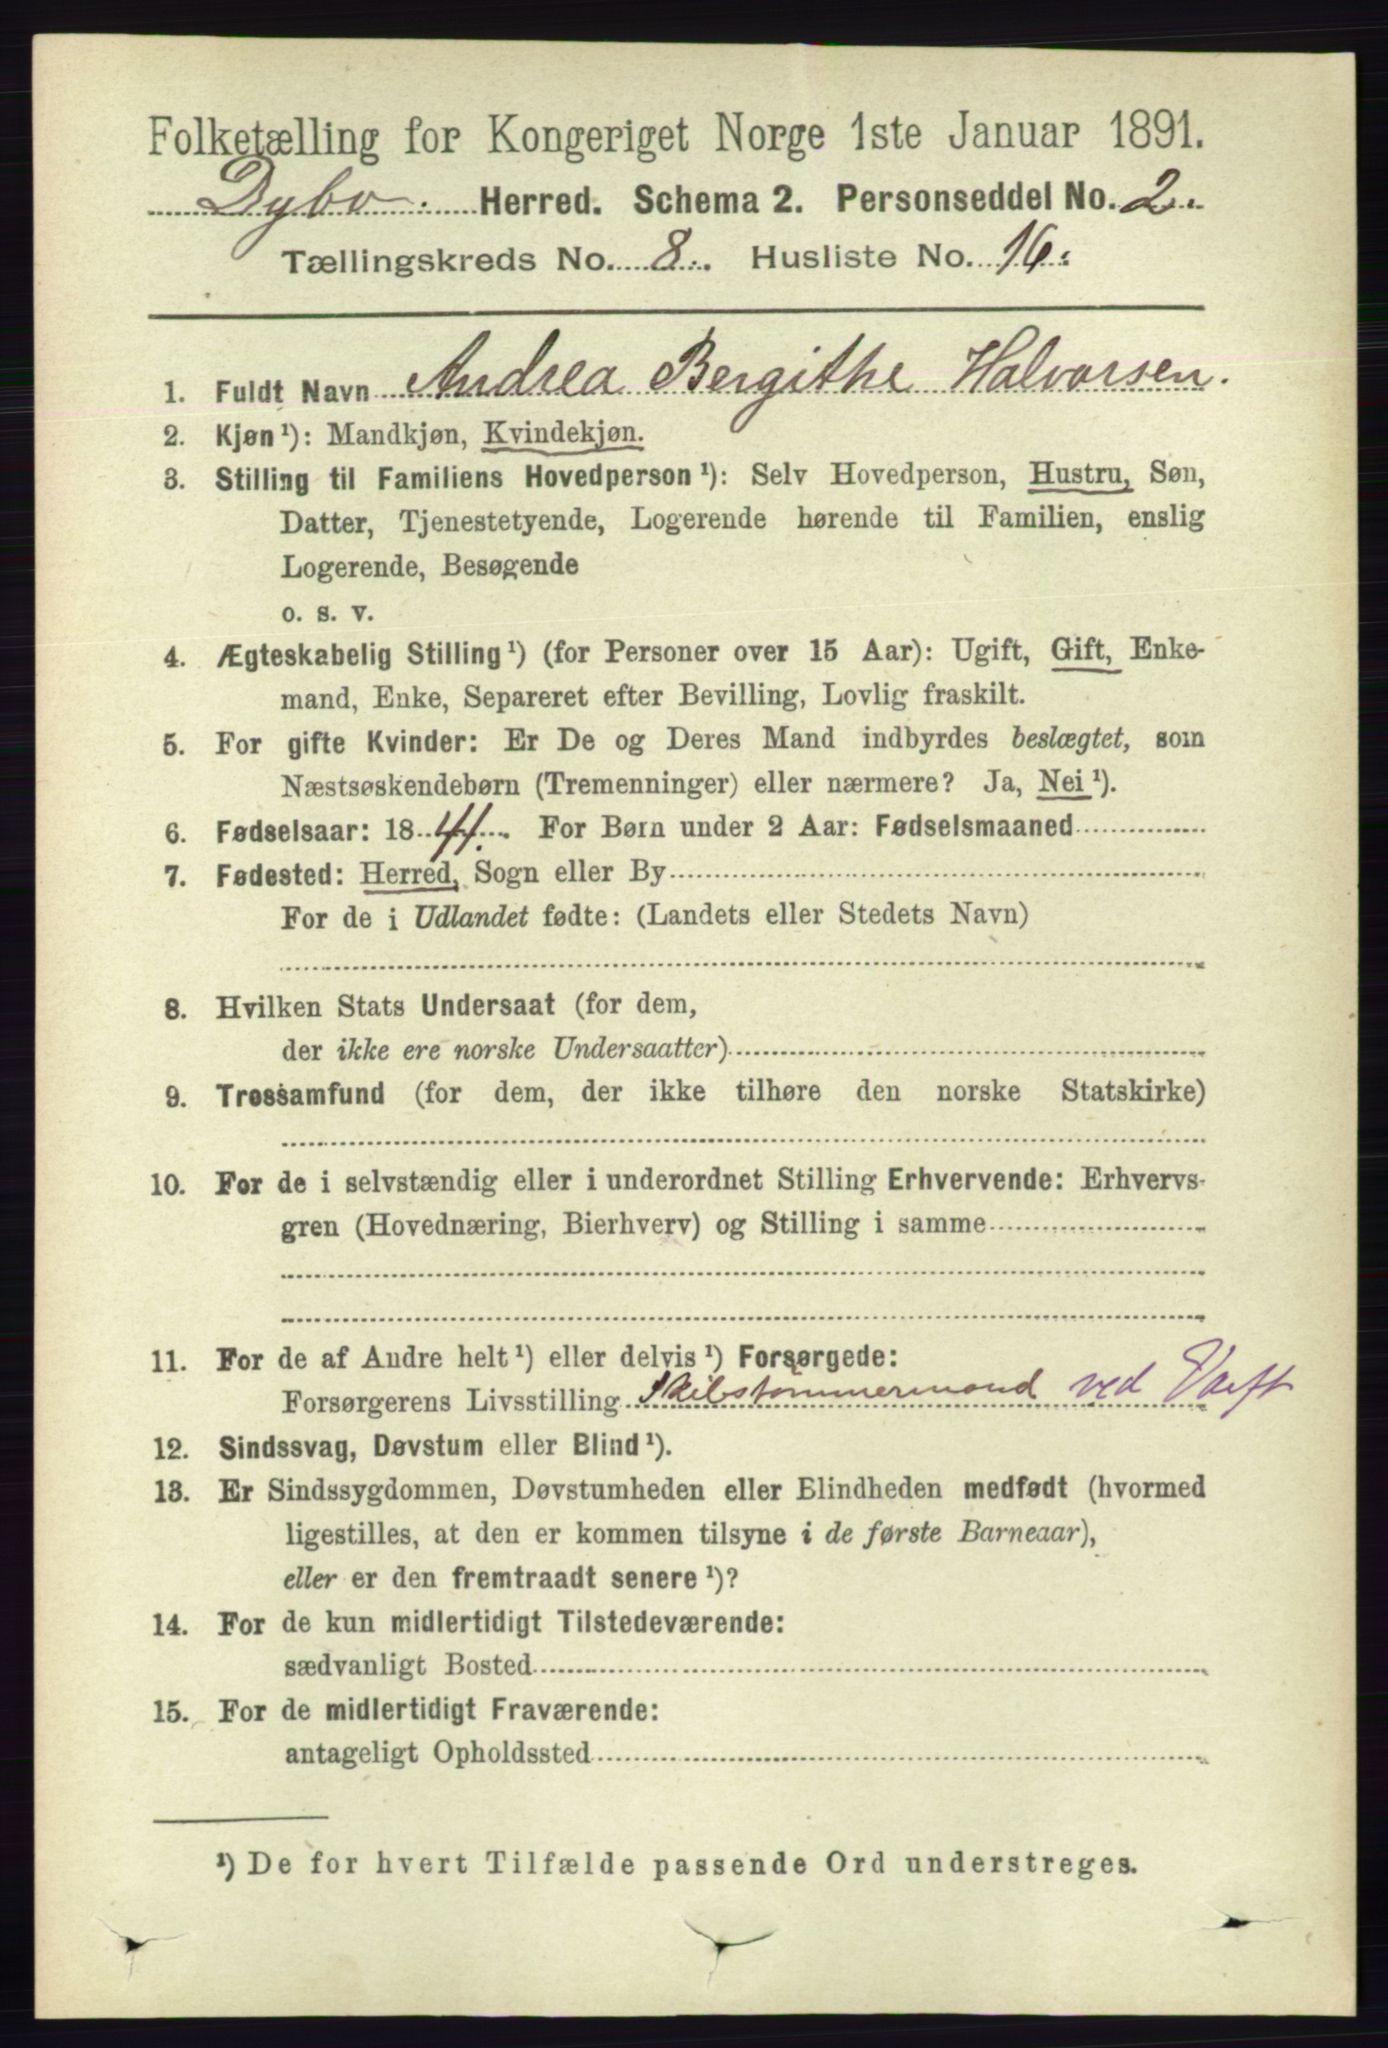 Folketælling for Kongeriget Norge 1ste Januar 1891.
Dybø. Herred. Schema 2. Personseddel No. 2.
Tællingskreds No. 8. Husliste No. 16.
1. Fuldt Navn Andrea Bergithe Halvorsen.
2. Kjøn¹): Mandkjøn, Kvindekjøn.
3. Stilling til Familiens Hovedperson¹): Selv Hovedperson, Hustru, Søn,
Datter, Tjenestetyende, Logerende hørende til Familien, enslig
Logerende, Besøgende
o. s. v.
4. Ægteskabelig Stilling¹) (for Personer over 15 Aar): Ugift, Gift, Enke-
mand, Enke, Separeret efter Bevilling, Lovlig fraskilt.
5. For gifte Kvinder: Er De og Deres Mand indbyrdes beslægtet, som
Næstsøskendebørn (Tremenninger) eller nærmere? Ja, Nei¹).
6. Fødselsaar: 1844. For Børn under 2 Aar: Fødselsmaaned
7. Fødested: Herred, Sogn eller By
For de i Udlandet fødte: (Landets eller Stedets Navn)
8. Hvilken Stats Undersaat (for dem,
der ikke ere norske Undersaatter)
9. Trossamfund (for dem, der ikke tilhøre den norske Statskirke)
10. For de i selvstændig eller i underordnet Stilling Erhvervende: Erhvervs-
gren (Hovednæring, Bierhverv) og Stilling i samme
11. For de af Andre helt¹) eller delvis¹) Forsørgede:
Forsørgerens Livsstilling Skibstømmermand ved Værft
12. Sindssvag, Døvstum eller Blind¹).
13. Er Sindssygdommen, Døvstumheden eller Blindheden medfødt (hvormed
ligestilles, at den er kommen tilsyne i de første Barneaar),
eller er den fremtraadt senere¹)?
14. For de kun midlertidigt Tilstedeværende:
sædvanligt Bosted
15. For de midlertidigt Fraværende:
antageligt Opholdssted
¹) De for hvert Tilfælde passende Ord understreges.